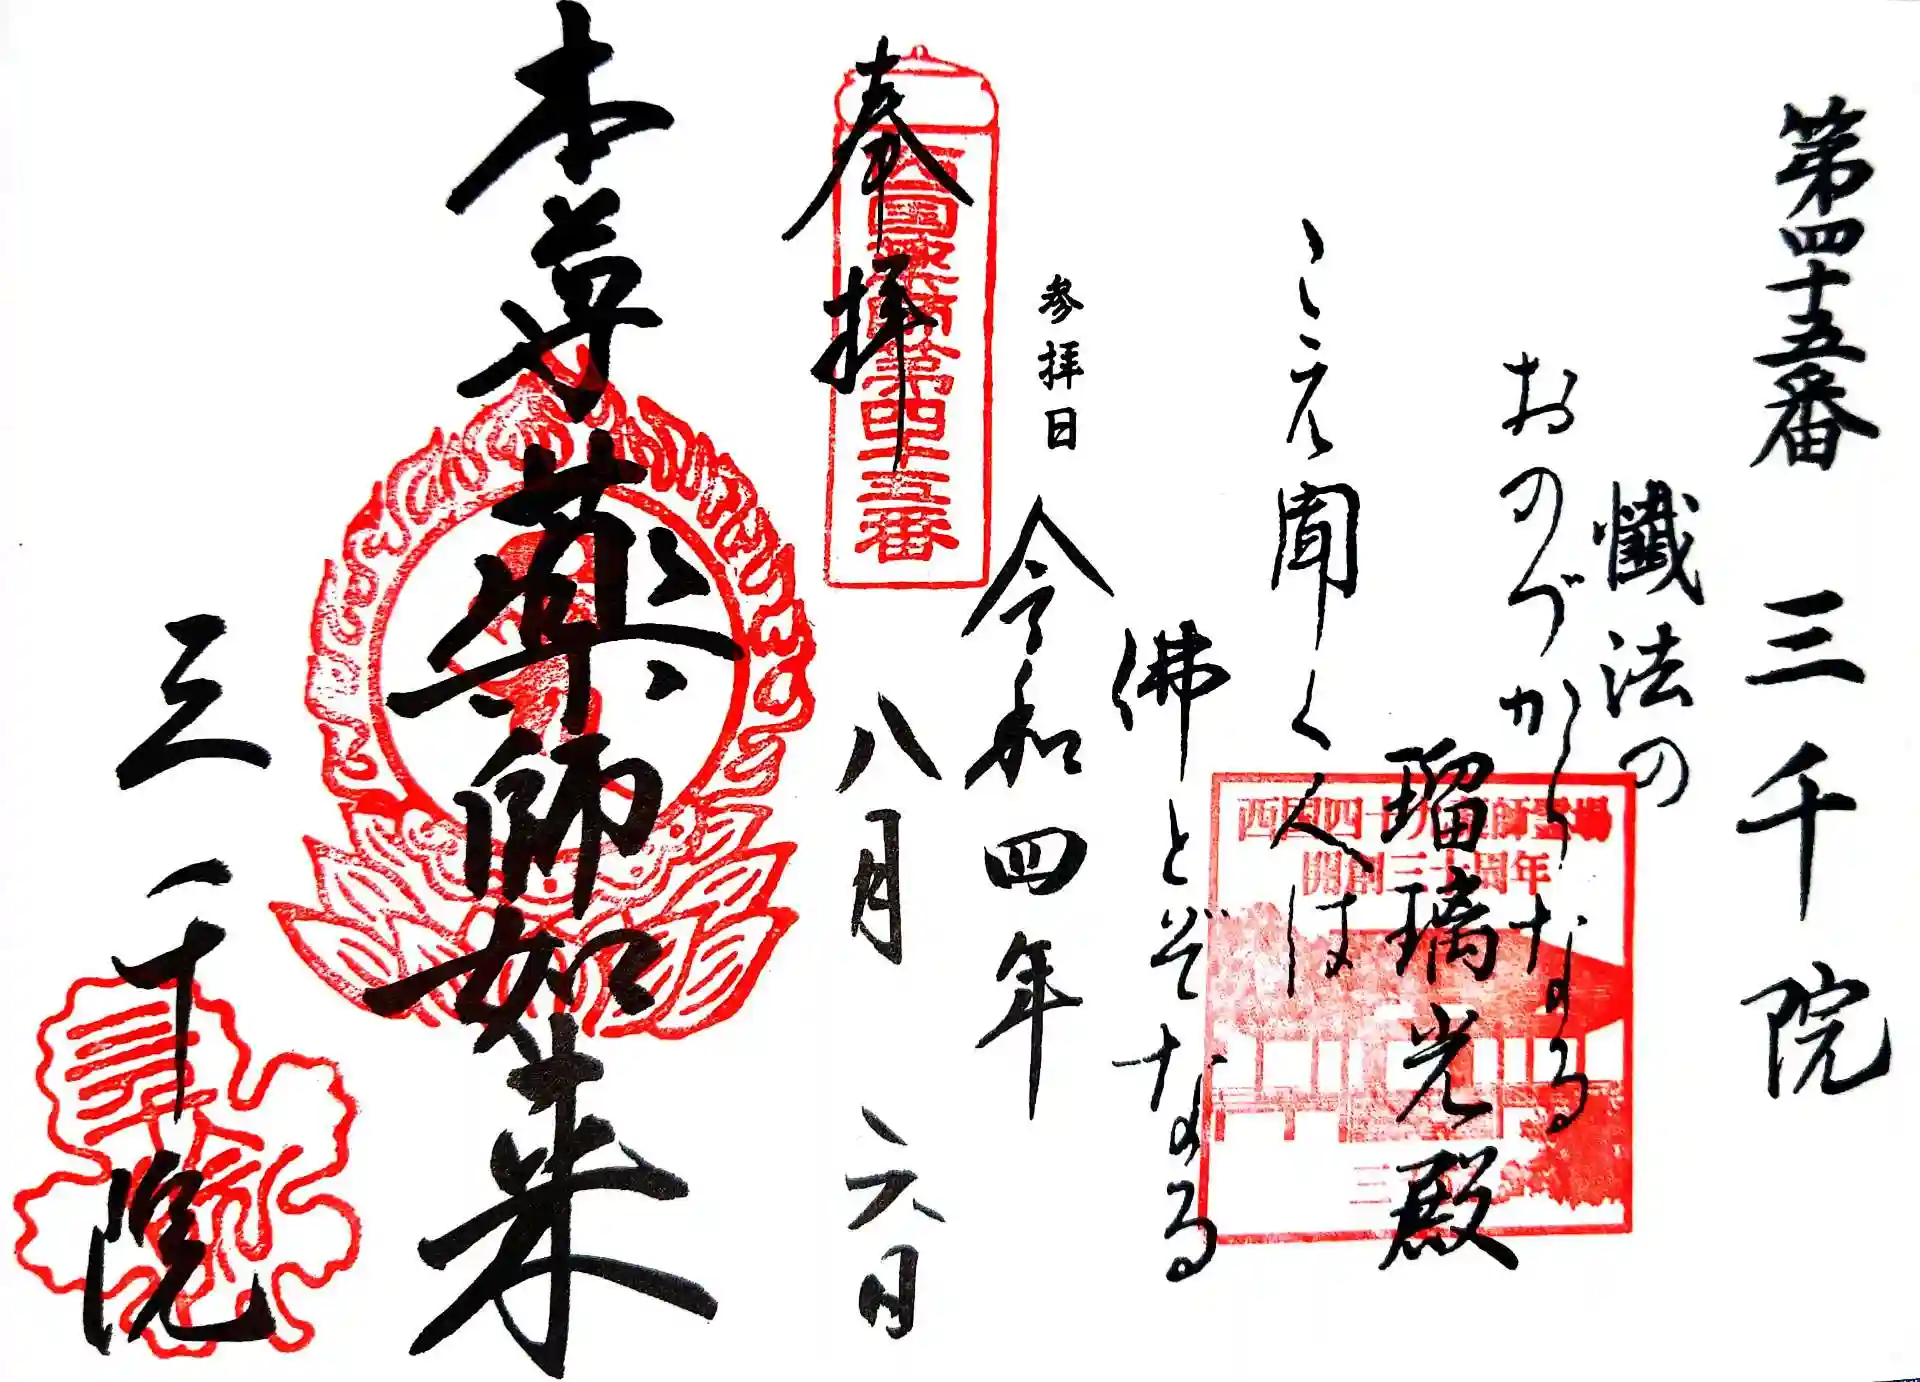 第四十五番 三千院
懺法の
おのづからなる
瑠璃光殿
こえ聞く人は
佛とぞなる
西国四十九薬師霊場
開創三十周年
参拝日
令和四年
八月六日
奉拝
西国薬師第四十五番
本尊薬師如来
三千院